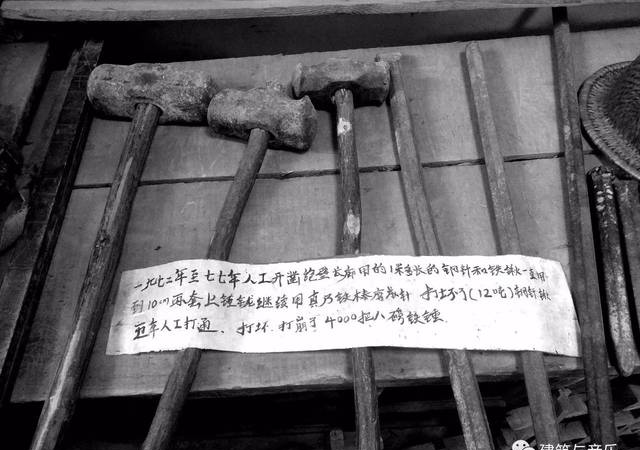 一九七二年至七七年人工开凿绝壁长廊用的1米多长的钢针和铁锹一直用
到10cm 再套上 继续用真乃铁棒磨成针 打坏了(12吨)钢针
五年人工打通、打坏、打崩了4000把八磅铁锤
建筑与音乐